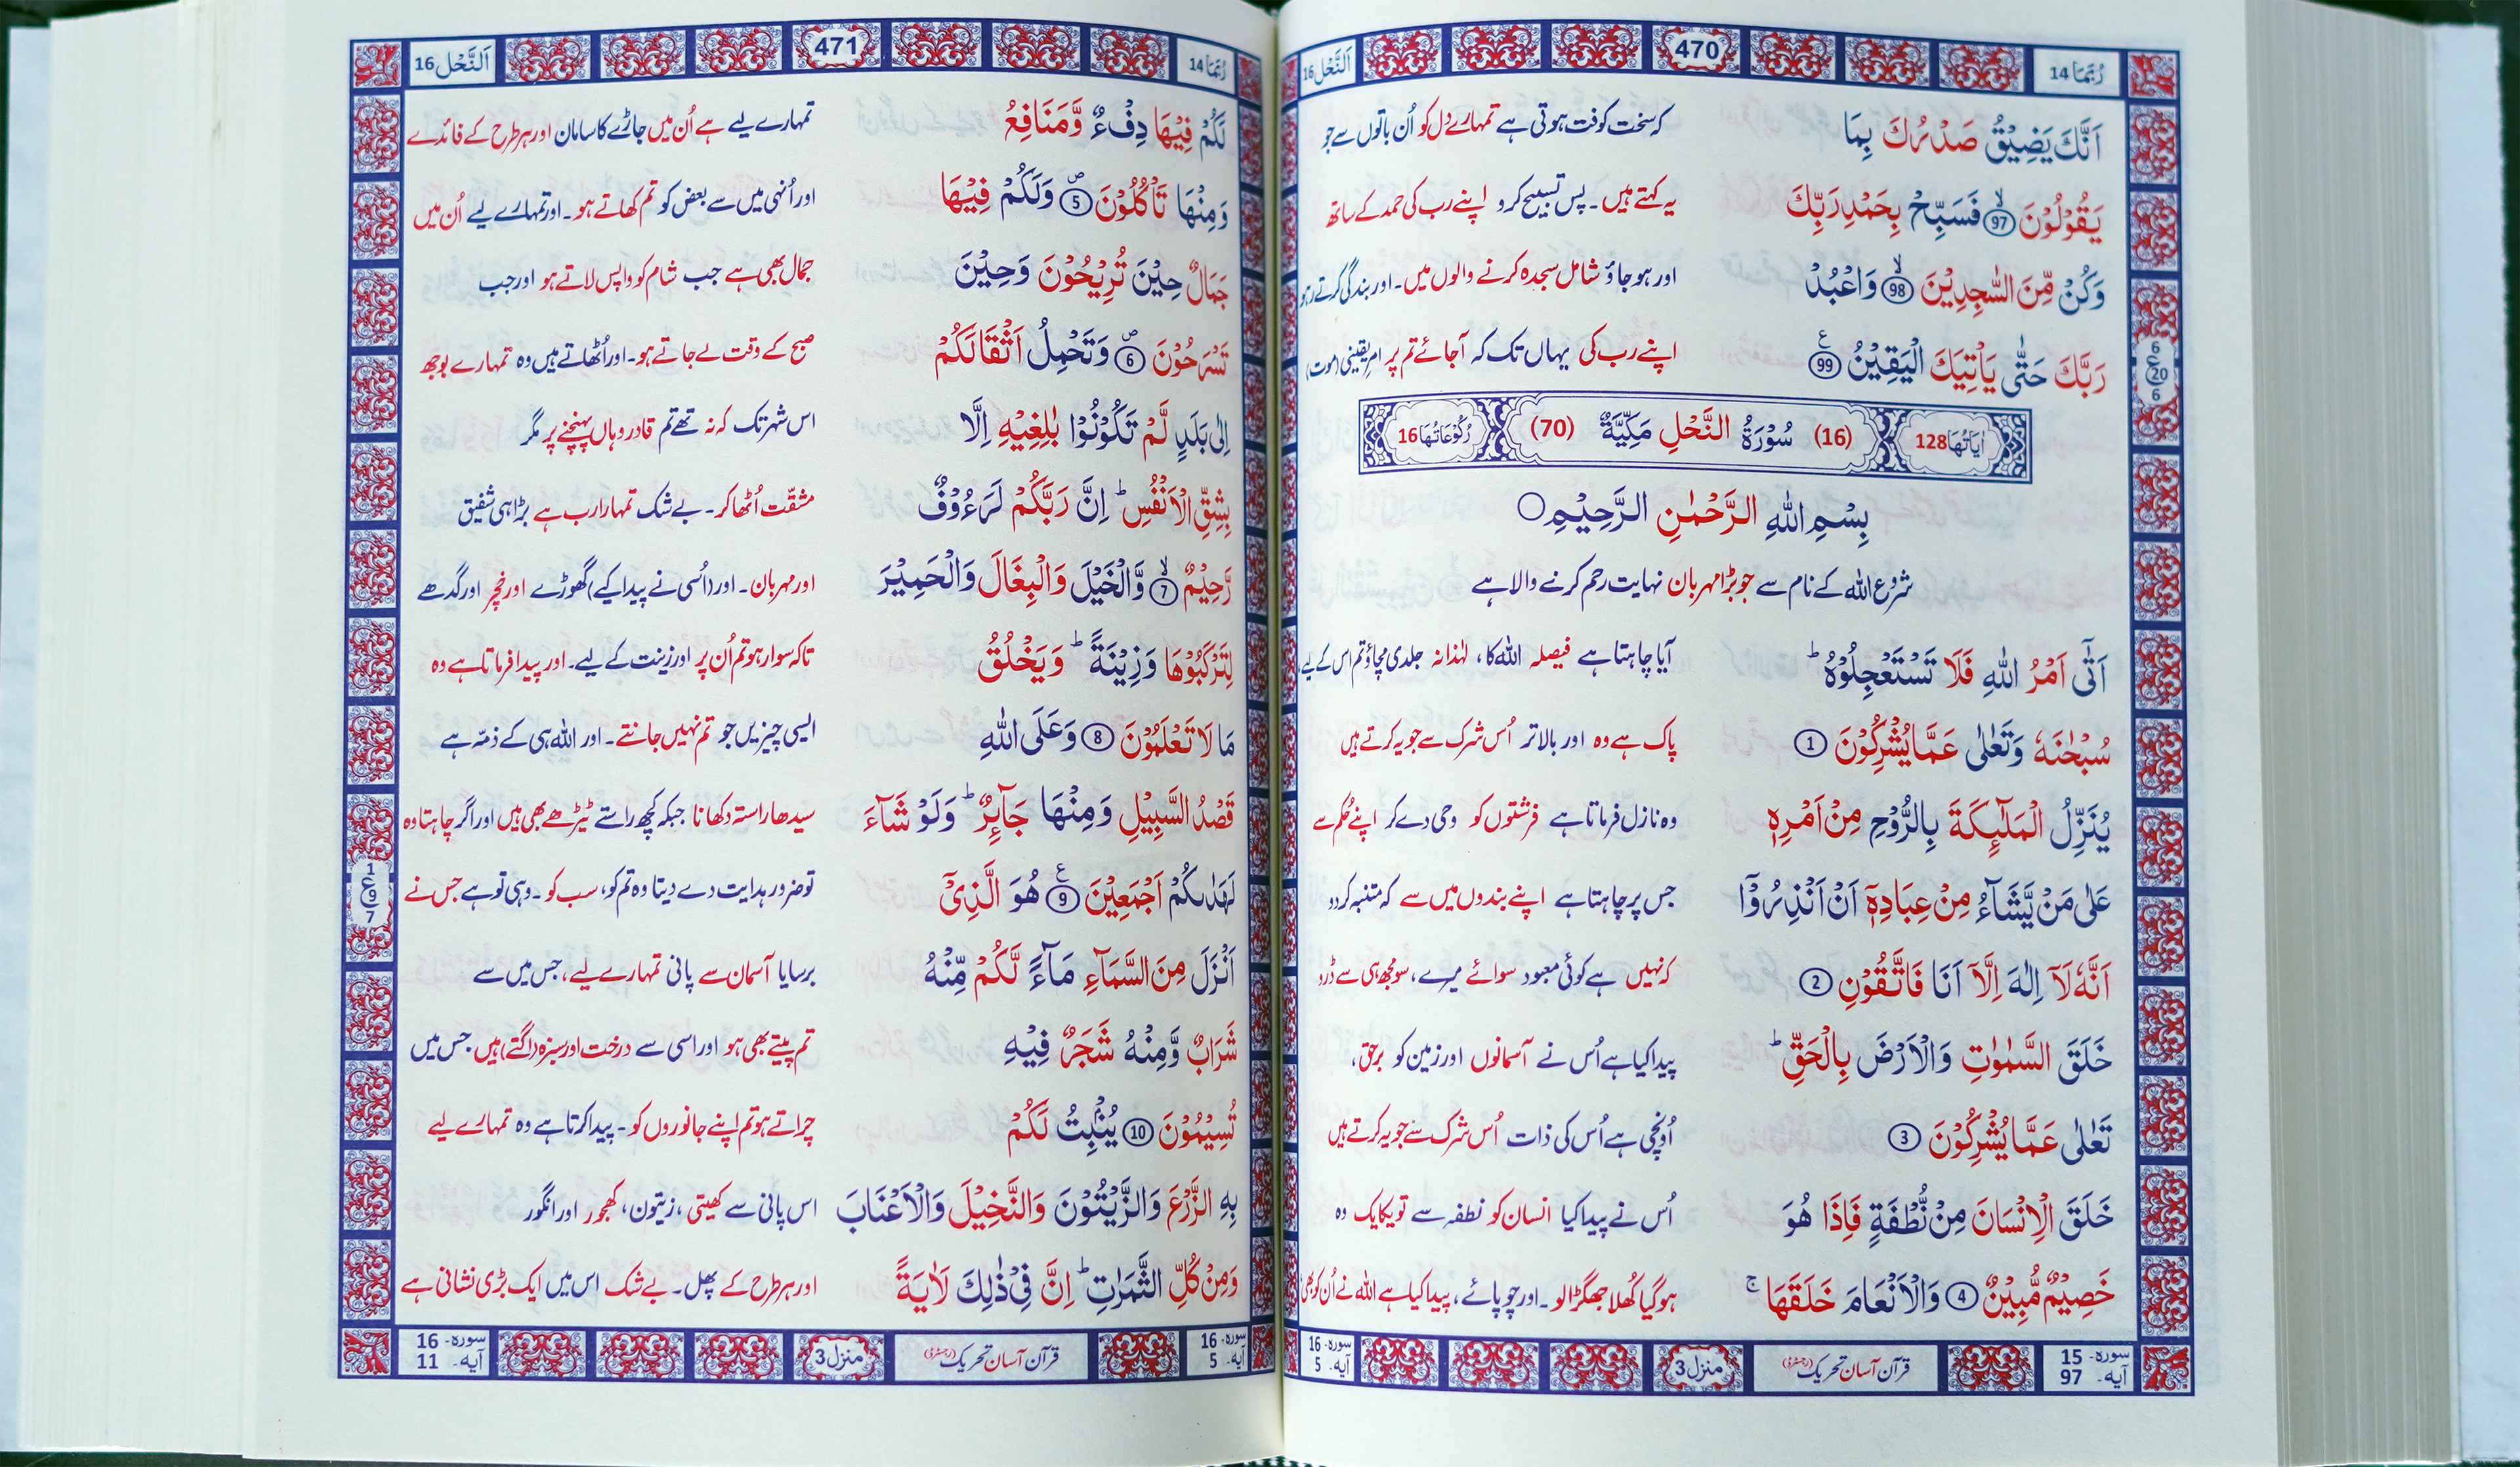 رُبَمَا 14
470
اَلنَّحْل 16
اَنَّكَ يَضِيْقُ صَدْرُكَ بِمَا کہ سخت کوفت ہوتی ہے تمہارے دل کو اُن باتوں سے جو
يَقُوْلُوْنَ ۙ‏97 فَسَبِّحْ بِحَمْدِ رَبِّكَ یہ کہتے ہیں۔ پس تسبیح کرو اپنے رب کی حمد کے ساتھ
وَكُنْ مِّنَ السّٰجِدِيْنَ ۙ‏98 وَاعْبُدْ اور ہو جاؤ شامل سجدہ کرنے والوں میں۔ اور بندگی کرتے رہو
رَبَّكَ حَتّٰى يَاْتِيَكَ الْيَقِيْنُ ‏99 ع اپنے رب کی یہاں تک کہ آجائے تم پر امرِ یقینی (موت)
6 ع 20 6
اٰيَاتُهَا 128 (16) سُوْرَةُ النَّحْلِ مَكِّيَّةٌ (70) رُكُوْعَاتُهَا 16
بِسْمِ اللّٰهِ الرَّحْمٰنِ الرَّحِيْمِ ○
شروع اللہ کے نام سے جو بڑا مہربان نہایت رحم کرنے والا ہے
اَتٰٓى اَمْرُ اللّٰهِ فَلَا تَسْتَعْجِلُوْهُ ؕ آیا چاہتا ہے فیصلہ اللہ کا، لہٰذا نہ جلدی مچاؤ تم اس کے لیے۔
سُبْحٰنَهٗ وَتَعٰلٰى عَمَّا يُشْرِكُوْنَ ‏1 پاک ہے وہ اور بالاتر اُس شرک سے جو یہ کرتے ہیں
يُنَزِّلُ الْمَلٰٓئِكَةَ بِالرُّوْحِ مِنْ اَمْرِهٖ وہ نازل فرماتا ہے فرشتوں کو وحی دے کر اپنے حُکم سے
عَلٰى مَنْ يَّشَآءُ مِنْ عِبَادِهٖۤ اَنْ اَنْذِرُوْۤا جس پر چاہتا ہے اپنے بندوں میں سے کہ متنبہ کردو
اَنَّهٗ لَاۤ اِلٰهَ اِلَّاۤ اَنَا فَاتَّقُوْنِ ‏2 کہ نہیں ہے کوئی معبود سوائے میرے، سو مجھ ہی سے ڈرو
خَلَقَ السَّمٰوٰتِ وَالْاَرْضَ بِالْحَقِّ ؕ پیدا کیا ہے اُس نے آسمانوں اور زمین کو برحق،
تَعٰلٰى عَمَّا يُشْرِكُوْنَ ‏3 اُونچی ہے اُس کی ذات اُس شرک سے جو یہ کرتے ہیں
خَلَقَ الْاِنْسَانَ مِنْ نُّطْفَةٍ فَاِذَا هُوَ اُس نے پیدا کیا انسان کو نطفہ سے تو یکایک وہ
خَصِيْمٌ مُّبِيْنٌ ‏4 وَالْاَنْعَامَ خَلَقَهَا ۚ ہو گیا کُھلا جھگڑالو۔ اور چوپائے، پیدا کیا ہے اللہ نے اُن کو بھی
سورہ۔ 15
آیہ۔ 97
قرآن آسان تحریک (رجسٹرڈ)
منزل 3
سورہ۔ 16
آیہ۔ 5
رُبَمَا 14
471
اَلنَّحْل 16
لَكُمْ فِيْهَا دِفْءٌ وَّمَنَافِعُ تمہارے لیے ہے اُن میں جاڑے کا سامان اور ہر طرح کے فائدے
وَمِنْهَا تَاْكُلُوْنَ ‏5 وَلَكُمْ فِيْهَا اور اُنہی میں سے بعض کو تم کھاتے ہو۔ اور تمہارے لیے اُن میں
جَمَالٌ حِيْنَ تُرِيْحُوْنَ وَحِيْنَ جمال بھی ہے جب شام کو واپس لاتے ہو اور جب
تَسْرَحُوْنَ ‏6 وَتَحْمِلُ اَثْقَالَكُمْ صبح کے وقت لے جاتے ہو۔ اور اُٹھاتے ہیں وہ تمہارے بوجھ
اِلٰى بَلَدٍ لَّمْ تَكُوْنُوْا بٰلِغِيْهِ اِلَّا اس شہر تک کہ نہ تھے تم قادر وہاں پہنچنے پر مگر
بِشِقِّ الْاَنْفُسِ ؕ اِنَّ رَبَّكُمْ لَرَءُوْفٌ مشقّت اُٹھا کر۔ بے شک تمہارا رب ہے بڑا ہی شفیق
رَّحِيْمٌ ۙ‏7 وَّالْخَيْلَ وَالْبِغَالَ وَالْحَمِيْرَ اور مہربان۔ اور (اُسی نے پیدا کیے) گھوڑے اور خچر اور گدھے
لِتَرْكَبُوْهَا وَزِيْنَةً ؕ وَيَخْلُقُ تاکہ سوار ہو تم اُن پر اور زینت کے لیے۔ اور پیدا فرماتا ہے وہ
مَا لَا تَعْلَمُوْنَ ‏8 وَعَلَى اللّٰهِ ایسی چیزیں جو تم نہیں جانتے۔ اور اللہ ہی کے ذمّہ ہے
قَصْدُ السَّبِيْلِ وَمِنْهَا جَآئِرٌ ؕ وَلَوْ شَآءَ سیدھا راستہ دکھانا جبکہ کچھ راستے ٹیڑھے بھی ہیں اور اگر چاہتا وہ
لَهَدٰىكُمْ اَجْمَعِيْنَ ‏9 ع هُوَ الَّذِيْۤ تو ضرور ہدایت دے دیتا وہ تم کو، سب کو۔ وہی تو ہے جس نے
1 ع 9 7
اَنْزَلَ مِنَ السَّمَآءِ مَآءً لَّكُمْ مِّنْهُ برسایا آسمان سے پانی تمہارے لیے، جس میں سے
شَرَابٌ وَّمِنْهُ شَجَرٌ فِيْهِ تم پیتے بھی ہو اور اسی سے درخت اور سبزہ (اگتے) ہیں جس میں
تُسِيْمُوْنَ ‏10 يُنْۢبِتُ لَكُمْ چراتے ہو تم اپنے جانوروں کو۔ پیدا کرتا ہے وہ تمہارے لیے
بِهِ الزَّرْعَ وَالزَّيْتُوْنَ وَالنَّخِيْلَ وَالْاَعْنَابَ اس پانی سے کھیتی، زیتون، کھجور اور انگور
وَمِنْ كُلِّ الثَّمَرٰتِ ؕ اِنَّ فِيْ ذٰلِكَ لَاٰيَةً اور ہر طرح کے پھل۔ بے شک اس میں ایک بڑی نشانی ہے
سورہ۔ 16
آیہ۔ 5
قرآن آسان تحریک (رجسٹرڈ)
منزل 3
سورہ۔ 16
آیہ۔ 11